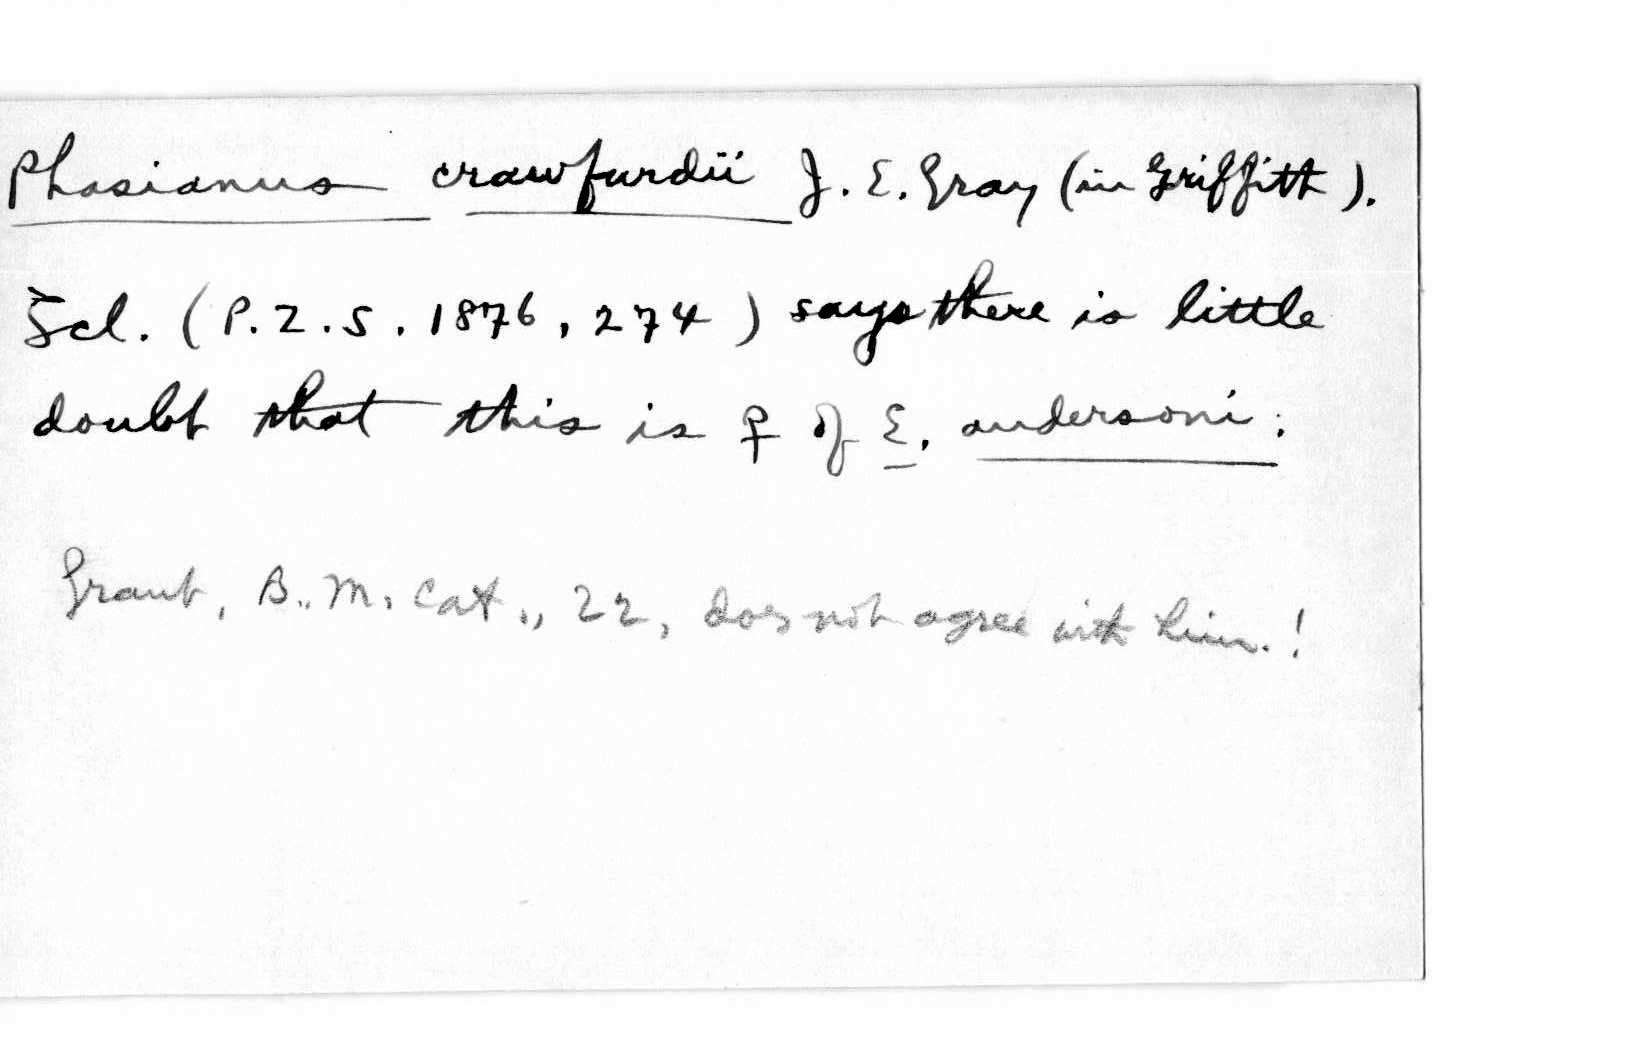 Phasianus crawfurdii J. E. Gray (in Griffith).
Scl. (P.Z.S. 1876, 274) says there is little
doubt that this is ♀ of E. andersoni.
Grant, B.M. Cat., 22, does not agree with him.!